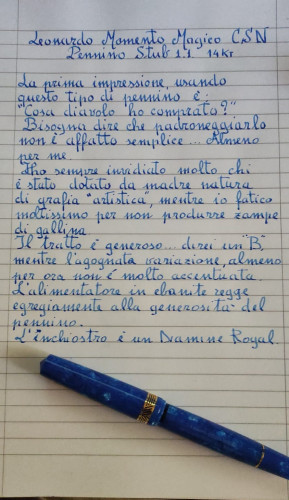 Leonardo Momento Magico CSN
Pennino Stub 1.1 14Kr
La prima impressione, usando
questo tipo di pennino è:
"Cosa diavolo ho comprato?"
Bisogna dire che padroneggiarlo
non è affatto semplice... Almeno
per me.
Ho sempre invidiato molto chi
è stato dotato da madre natura
di grafia "artistica", mentre io fatico
moltissimo per non produrre zampe
di gallina
Il tratto è generoso... direi un "B"
mentre l'agognata variazione, almeno
per ora non è molto accentuata.
L'alimentatore in ebanite regge
egregiamente alla generosità del
pennino.
L'inchiostro è un Diamine Royal.